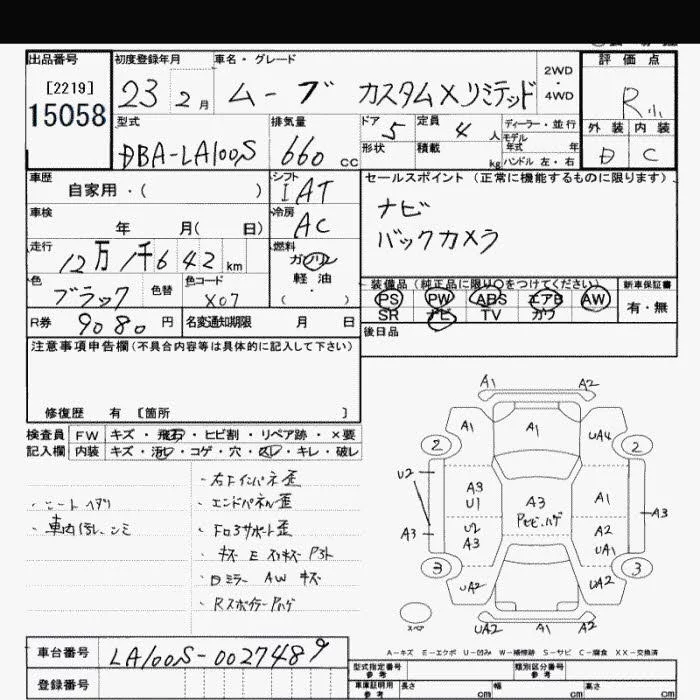 出品番号 初度登録年月 車名・グレード 評価点
[2219] 23 2月 ムーブ カスタムXリミテッド 2WD・4WD R
15058
型式 排気量 ドア 5 定員 4人 ディーラー・並行 外装 内装
DBA-LA100S 660cc 形状 積載 kg モデル年式 年 ハンドル 左・右 D C
車歴 自家用・( ) シフト IAT セールスポイント(正常に機能するものに限ります)
車検 年 月( 日) 冷房 AC ナビ
走行 12万1千642km 燃料 ガソリン 軽油・( ) バックカメラ
色 ブラック 色替 色コード X07 装備品(純正品に限り○をつけてください) 新車保証書
PS PW ABS エアB AW 有・無
R券 9080円 名変通知期限 月 日 SR ナビ TV カワ
後日品
注意事項申告欄(不具合内容等は具体的に記入して下さい)
修復歴 有 [箇所 ]
検査員 FW キズ・飛石・ヒビ割・リペア跡・×要
記入欄 内装 キズ・汚レ・コゲ・穴・スレ・キレ・破レ
・右Fインパネ歪
・シートヘタリ ・エンドパネル歪
・車内汚レ、シミ
・キズ E
・ミラー AW キズ
・Rスポイラーハゲ
A1 A2
A1 A1 UA4
2 2
U2 A3 U1 A3 A1
U2 A3 A2 UA1 A3
A3
3 3
UA2 UA2
スペア UA2 A1 A2
A-キズ E-エクボ U-凹み W-補修跡 S-サビ C-腐食 XX-交換済
車台番号 LA100S-0027489
型式指定番号 参考 類別区分番号 参考
登録番号 車庫証明用 参考 長さ cm 幅 cm 高さ cm